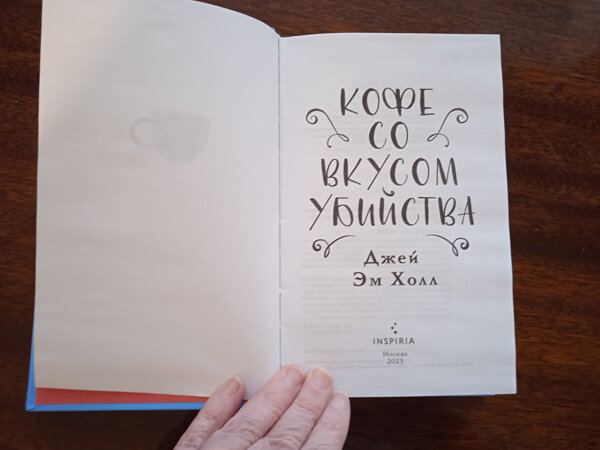 КОФЕ
СО
ВКУСОМ
УБИЙСТВА
Джей
Эм Холл
INSPIRIA
Москва
2023